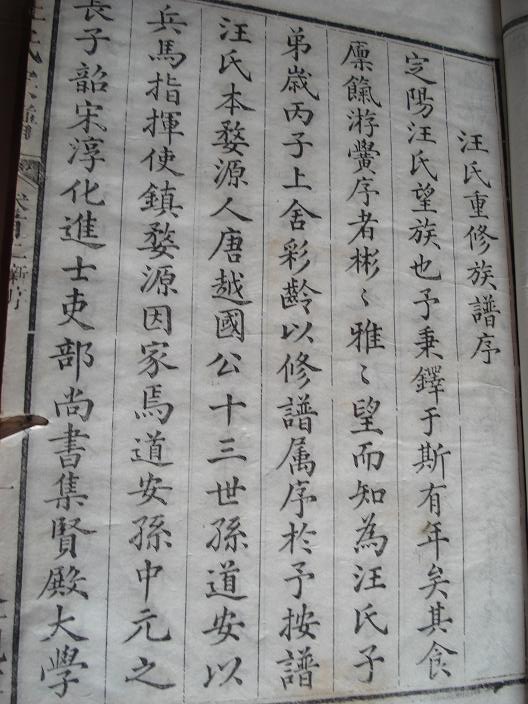 汪氏重修族譜序
定陽汪氏望族也予秉鐸于斯有年矣其食
廩餼游黌序者彬〻雅〻望而知為汪氏子
弟歲丙子上舍彩齡以修譜属序於予按譜
汪氏本婺源人唐越國公十三世孫道安以
兵馬指揮使鎮婺源因家焉道安孫中元之
長子韶宋淳化進士吏部尚書集賢殿大學